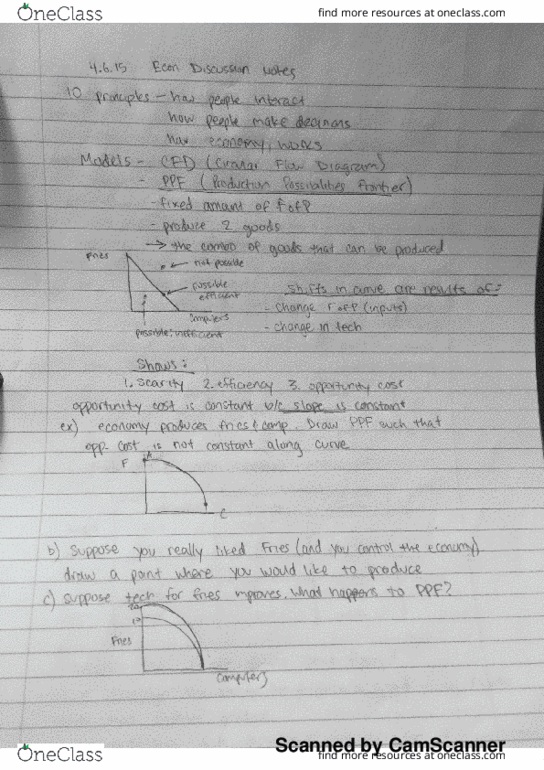 OneClass
find more resources at oneclass.com
4.6.15 Econ Discussion Notes
10 principles - how people interact
how people make decisions
how economy works
Models - CFD (Circular Flow Diagram)
- PPF (Production Possibilities Frontier)
- fixed amount of f of P
- produce 2 goods
→ the combo of goods that can be produced
Fries
← not possible
← possible
efficient
computers
possible; inefficient
shifts in curve are results of:
- change F of P (inputs)
- change in tech
Shows:
1. scarity 2. efficiency 3. opportunity cost
opportunity cost is constant b/c slope is constant
ex) economy produces fries & comp. Draw PPF such that
opp. cost is not constant along curve
F
A
C
b) suppose you really liked Fries (and you control the economy)
draw a point where you would like to produce
c) suppose tech for fries improves. What happens to PPF?
Fries
computers
Scanned by CamScanner
OneClass
find more resources at oneclass.com